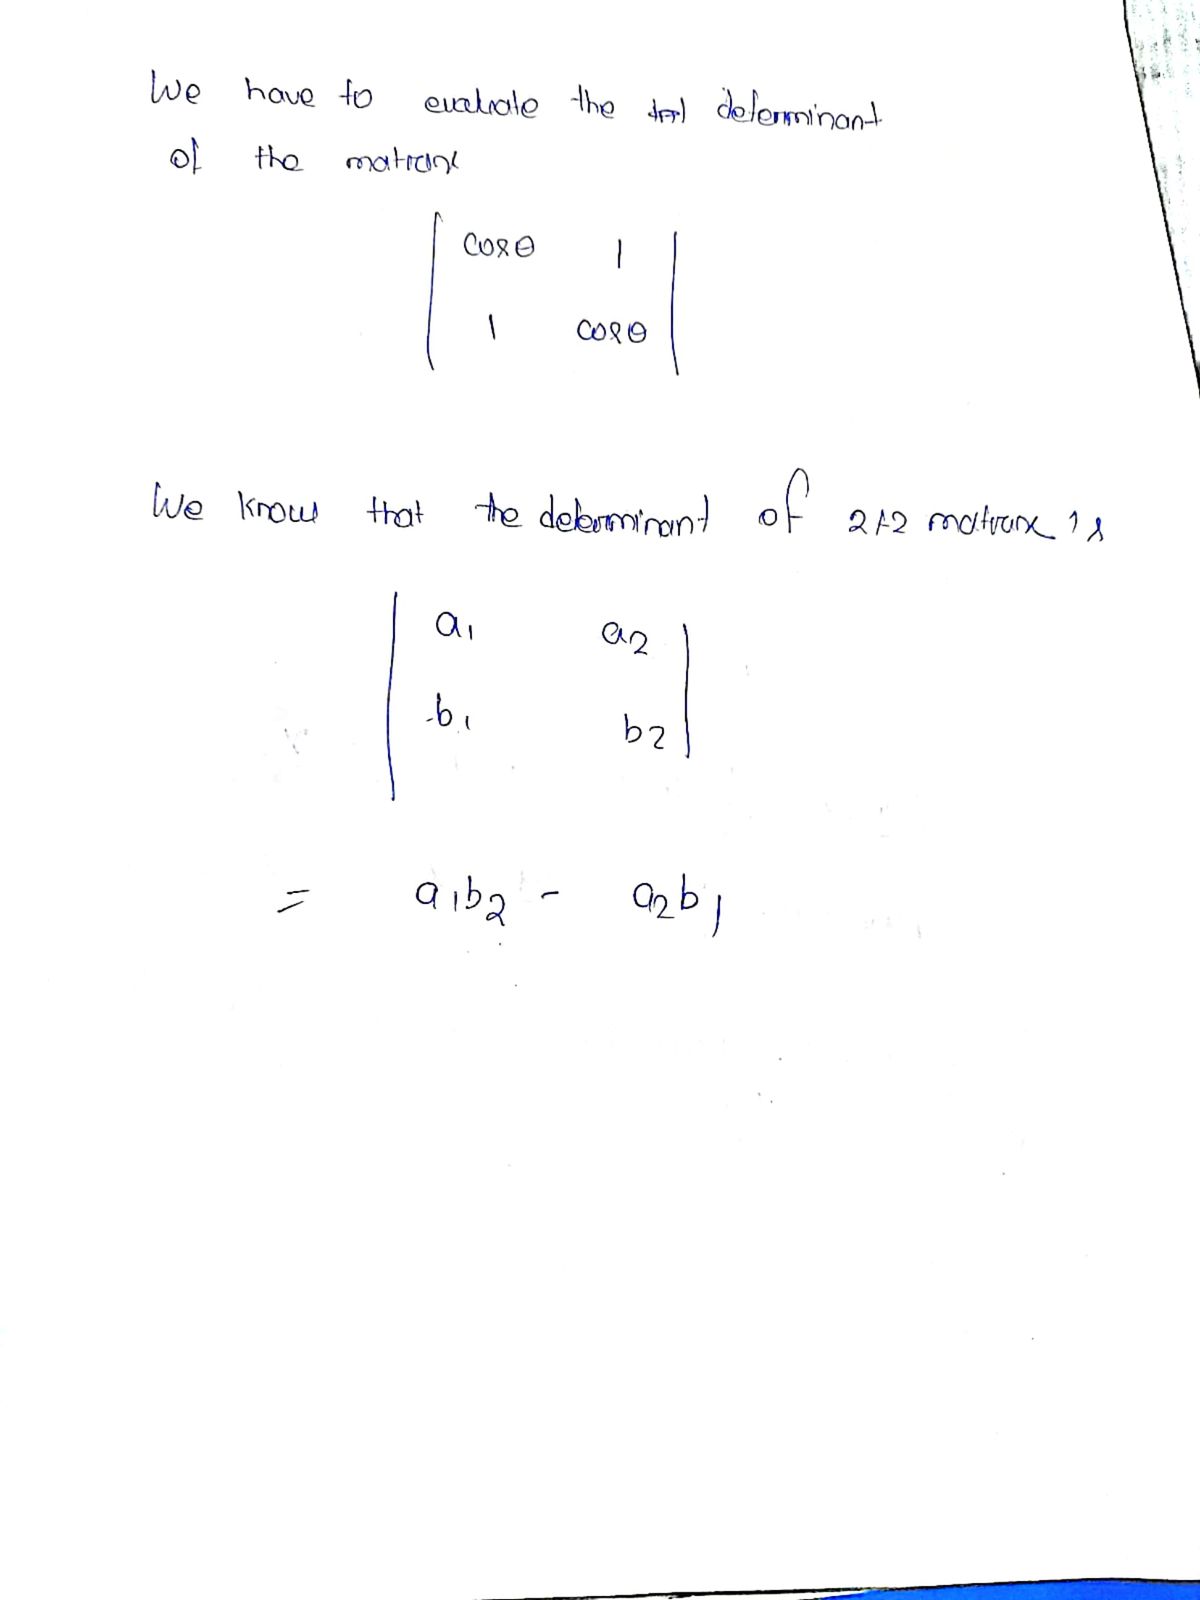 We have to evaluate the determinant
of the matrix
cosθ 1
1 cosθ
We know that the determinant of 2×2 matrix is
a1 a2
b1 b2
= a1b2 - a2b1